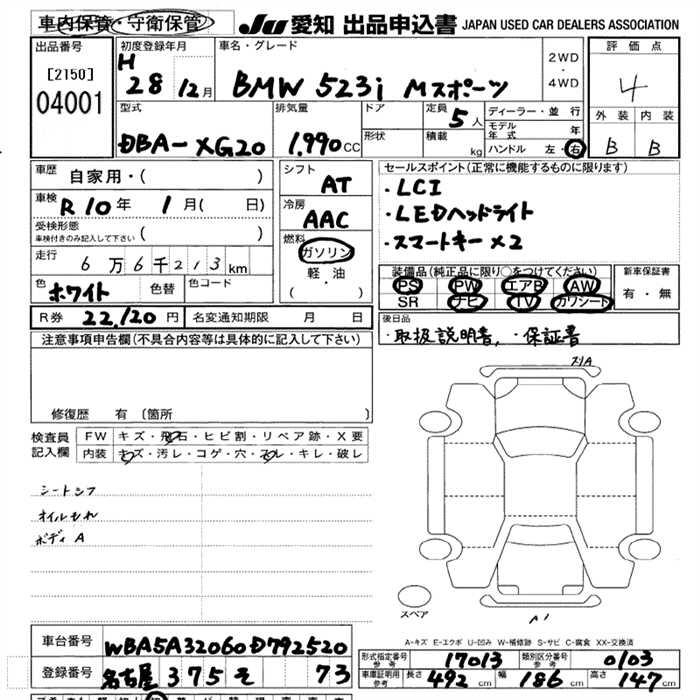 車内保管・守衛保管
JU 愛知 出品申込書 JAPAN USED CAR DEALERS ASSOCIATION
出品番号 初度登録年月 車名・グレード 評価点
[2150] 04001 H 28年 12月 BMW 523i Mスポーツ 2WD・4WD 4
型式 排気量 ドア 定員 5人 ディーラー・並行 外装 内装
モデル年式 年
DBA-XG20 1,990cc 形状 積載 kg ハンドル 左・右 B B
車歴 自家用・( ) シフト AT セールスポイント(正常に機能するものに限ります)
車検 R10年 1月( 日) 冷房 AAC ・LCI
・LEDヘッドライト
受検形態 車検付きのみ記入して下さい ( ) 燃料 ガソリン ・スマートキー×2
走行 6万6千213km 軽・油 ( ) 装備品(純正品に限り○をつけてください) 新車保証書
色 ホワイト 色替 色コード PS PW エアB AW 有・無
SR ナビ TV カワシート
R券 22,120円 名変通知期限 月 日 後日品
・取扱説明書, ・保証書
注意事項申告欄(不具合内容等は具体的に記入して下さい)
修復歴 有 〔箇所
検査員記入欄 FW キズ・飛石・ヒビ割・リペア跡・X要
内装 キズ・汚レ・コゲ・穴・スレ・キレ・破レ
オイルもれ
ボディ A
スペア
A-キズ E-エクボ U-凹み W-補修跡 S-サビ C-腐食 XX-交換済
車台番号 WBA5A32060D792520 形式指定番号 参考 17013 類別区分番号 参考 0103
登録番号 名古屋 375 そ 73 車庫証明用 参考 長さ 492cm 幅 186cm 高さ 147cm